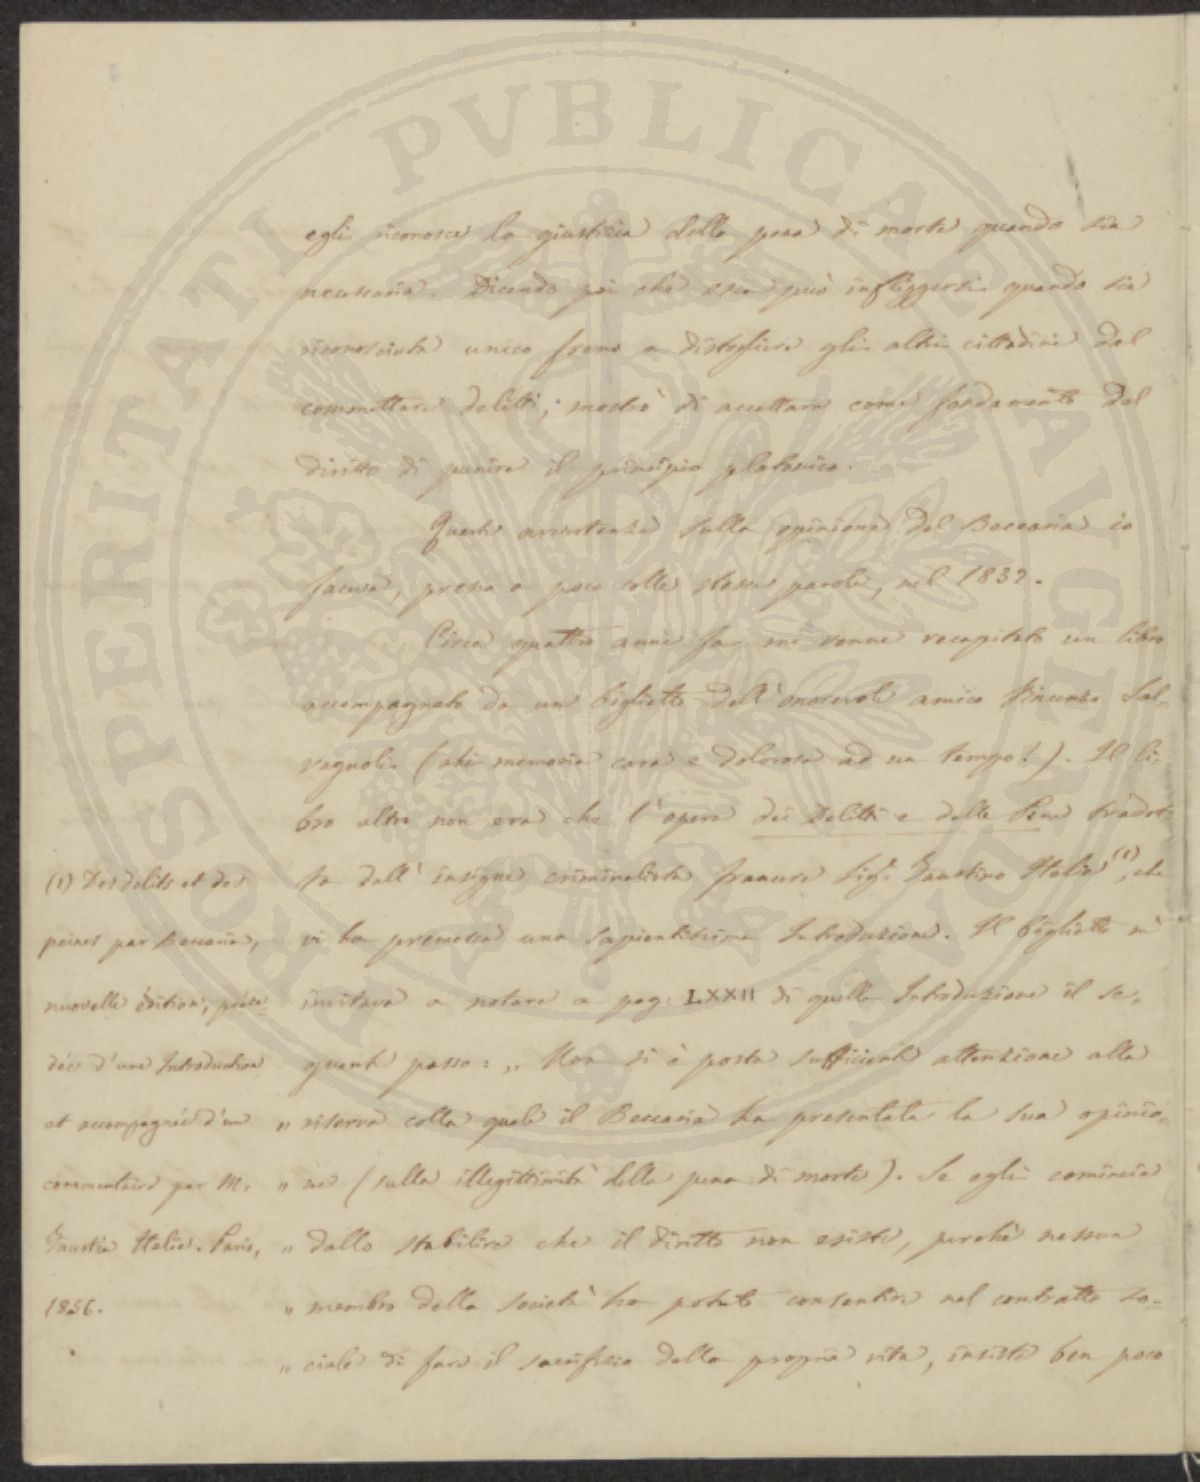 egli riconosce la giustizia della pena di morte quando sia
necessaria. Dicendo poi che essa può infliggersi quando sia
riconosciuta unico freno a distogliere gli altri cittadini dal
commettere delitti, mostrò di accettare come fondamento del
diritto di punire il principio platonico.
Queste avvertenze sulla opinione del Beccaria io
faceva, presso a poco colle stesse parole, nel 1832.
Circa quattro anni fa mi venne recapitato un libro
accompagnato da un biglietto dell'onorevole amico Vincenzo Sal-
vagnoli (ahi memoria cara e dolorosa ad un tempo!). Il li-
bro altro non era che l'opera dei Delitti e delle Pene tradot-
ta dall'insigne criminalista francese Sig. Faustino Helie (1), che
vi ha premessa una sapientissima Introduzione. Il biglietto m'
invitava a notare a pag. LXXII di quella Introduzione il se-
guente passo: „ Non si è posta sufficiente attenzione alla
„ riserva colla quale il Beccaria ha presentata la sua opinio-
„ ne (sulla illegittimità della pena di morte). Se egli comincia
„ dallo stabilire che il diritto non esiste, perchè nessun
„ membro della società ha potuto consentire nel contratto so-
„ ciale di fare il sacrifizio della propria vita, insiste ben poco
(1) Des delits et des
peines par Beccaria,
nuovelle édition, précé-
dée d'une Introduction
et accompagnée d'un
commentaire par M.
Faustin Helie. Paris,
1856.
PROSPERITATI PVBLICAE AVGENDAE